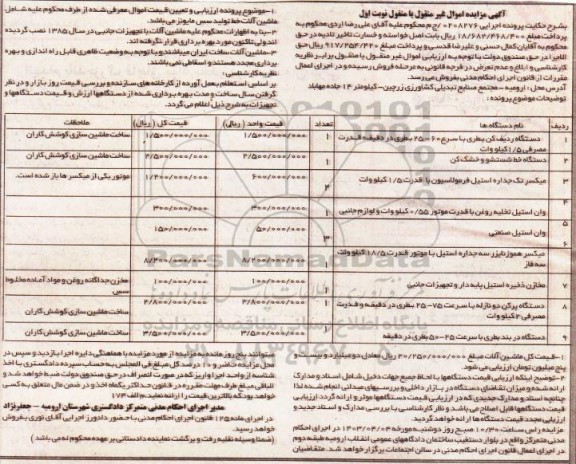 آگهی مزایده اموال غیر منقول یا منقول نوبت اول
بشرح حکایت پرونده اجرایی ۰۲۰۸۲۷۶ ج م محکوم علیه آقای علی رضا اردی محکوم به
پرداخت مبلغ ۱۸/۶۸۲/۴۶۸/۴۰۰ ریال بابت اصل خواسته و خسارت تاخیر تادیه در حق
محکوم له آقایان کمال حسنی و علیرضا قدسی و پرداخت مبلغ ۹۱۷/۲۵۴/۴۲۰ ریال
کارشناسی و ابلاغ و عدم تعرض در فرجه قانونی به مرحله فروش رسیده و در اجرای اعمال
مقررات از قانون اجرای احکام مدنی بفروش می رسد.
آدرس محل: ارومیه - مجتمع صنایع تبدیلی کشاورزی زرچین - کیلومتر ۱۴ جاده مهاباد
توضیحات موضوع پرونده:
۱- موضوع پرونده ارزیابی و تعیین قیمت اموال معرفی شده از طرف محکوم علیه شامل
ماشین آلات خط تولید سس مایونز می باشد.
۲- بنا به اظهارات محکوم علیه ماشین آلات با تجهیزات جانبی در سال ۱۳۸۵ نصب گردیده
اند ولی تاکنون مورد بهره برداری قرار نگرفته اند.
برداری مجدد هستند و اسقاطی نمی باشند.
نظریه کارشناسی:
بر اساس استعلام بعمل آورده از کارخانه های سازنده و بررسی قیمت روز بازار و در نظر
گرفتن سال ساخت و مدت بهره برداری شده از دستگاهها ارزش و قیمت دستگاهها و
تجهیزات به شرح ذیل اعلام می گردد.
ردیف نام دستگاه ها تعداد قیمت واحد (ریال) قیمت کل (ریال) ملاحظات
۱ دستگاه ردیف کن بطری با سرعت ۶۰-۲۵ بطری در دقیقه قدرت مصرفی ۱/۵ کیلو وات ۱ ۱/۵۰۰/۰۰۰/۰۰۰ ۱/۵۰۰/۰۰۰/۰۰۰ ساخت ماشین سازی کوشش کاران
۲ دستگاه خط شستشو و خشک کن ۱ ۲/۵۰۰/۰۰۰/۰۰۰ ۲/۵۰۰/۰۰۰/۰۰۰ ساخت ماشین سازی کوشش کاران
۳ میکسر تک جداره استیل فرمولاسیون با قدرت ۱/۵ کیلو وات ۲ ۶۰۰/۰۰۰/۰۰۰ ۱/۲۰۰/۰۰۰/۰۰۰ موتور یکی از میکسر ها باز شده است.
۴ وان استیل تخلیه روغن با قدرت موتور ۰/۵۵ کیلو وات و لوازم جانبی ۱ ۳۰۰/۰۰۰/۰۰۰ ۳۰۰/۰۰۰/۰۰۰
۵ وان استیل صنعتی ۳ ۵۰/۰۰۰/۰۰۰ ۱۵۰/۰۰۰/۰۰۰
۶ میکسر هموژنایزر سه جداره استیل با موتور قدرت ۱۸/۵ کیلو وات سه فاز ۱ ۸/۲۰۰/۰۰۰/۰۰۰ ۸/۲۰۰/۰۰۰/۰۰۰
۷ مخازن ذخیره استیل پایه دار و تجهیزات جانبی ۱۰۰/۰۰۰/۰۰۰ مخزن جداگانه روغن و مواد آماده مخلوط سس
۸ دستگاه پرکن دو نازله با سرعت ۷۵-۲۵ بطری در دقیقه و قدرت مصرفی ۲ کیلو وات ۱ ۲/۸۰۰/۰۰۰/۰۰۰ ۲/۸۰۰/۰۰۰/۰۰۰ ساخت ماشین سازی کوشش کاران
۹ دستگاه در بند بطری با سرعت ۵۰-۲۵ بطری در دقیقه ۱ ۳/۵۰۰/۰۰۰/۰۰۰ ۳/۵۰۰/۰۰۰/۰۰۰ ساخت ماشین سازی کوشش کاران
۱- قیمت کل ماشین آلات مبلغ ۲۰/۲۵۰/۰۰۰/۰۰۰ ریال معادل دو میلیارد و بیست و
پنج میلیون تومان ارزیابی می شود.
۲- توضیح اینکه ارزیابی قیمت دستگاهها با لحاظ جمیع جهات دخیل شامل اسناد و مدارک
ارائه شده و میزان تقاضای دستگاه در بازار داخلی و بررسیهای میدانی انجام شده لذا
چنانچه اسناد و مدارک جدیدی که در ارزیابی قیمت دستگاهها موثر و ارائه گردد ارزیابی
قیمت دستگاهها قابل اصلاح می باشد و نظر کارشناسی با بررسی مدارک و اسناد جدید و
ارزیابی مجدد قیمت دستگاه ها ارائه خواهد گردید.
مزایده راس ساعت ۱۰/۳۰ صبح روز دوشنبه مورخه ۱۴۰۳/۰۴/۰۴ در محل اجرای احکام
مدنی متمرکز واقع در بلوار دستغیب ساختمان دادگاههای عمومی انقلاب ارومیه طبقه دوم
در اجرای اعمال قانون اجرای احکام مدنی در سالن اجتماعات برگزار خواهد شد. متقاضیان
میتوانند پنج روز مانده به مزایده از مورد مزایده با هماهنگی دایره اجرا بازدید و سپس در
محل مزایده حاضر و ۱۰ درصد کل مبلغ فی المجلس به حساب سپرده دادگستری با اخذ
شناسه از واحد اجرا واریز که در صورت انصراف در حق صندوق دولت ضبط خواهد شد و
الباقی مبلغ ظرف مهلت مقرره در قانون حداکثر یکماه اخذ و در ضمن مال متعلق به کسی
خواهد بود که بالاترین قیمت را ارائه نماید. م الف ۱۷۴
مدیر اجرای احکام مدنی متمرکز دادگستری شهرستان ارومیه - جعفرنژاد
در اجرای ماده ۱۲۵ قانون اجرای احکام مدنی با حضور دادورز اجرایی آقای نوری بفروش
خواهد رسید.
(ضمناً وسیله نقلیه رفت و برگشت نماینده دادستانی بر عهده محکوم له می باشد)